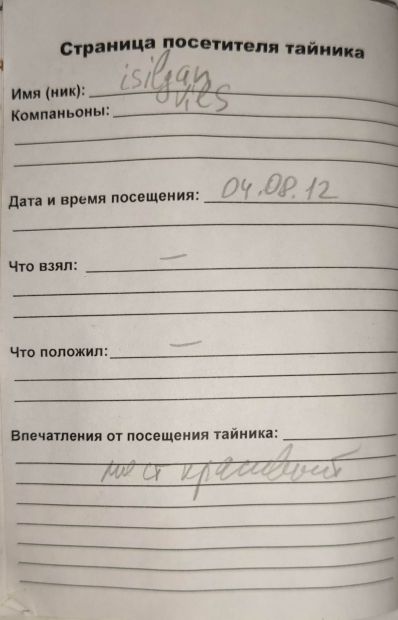 Страница посетителя тайника
Имя (ник): isilgan
vils
Компаньоны:
Дата и время посещения: 04.08.12
Что взял: —
Что положил: —
Впечатления от посещения тайника:
мост красивый